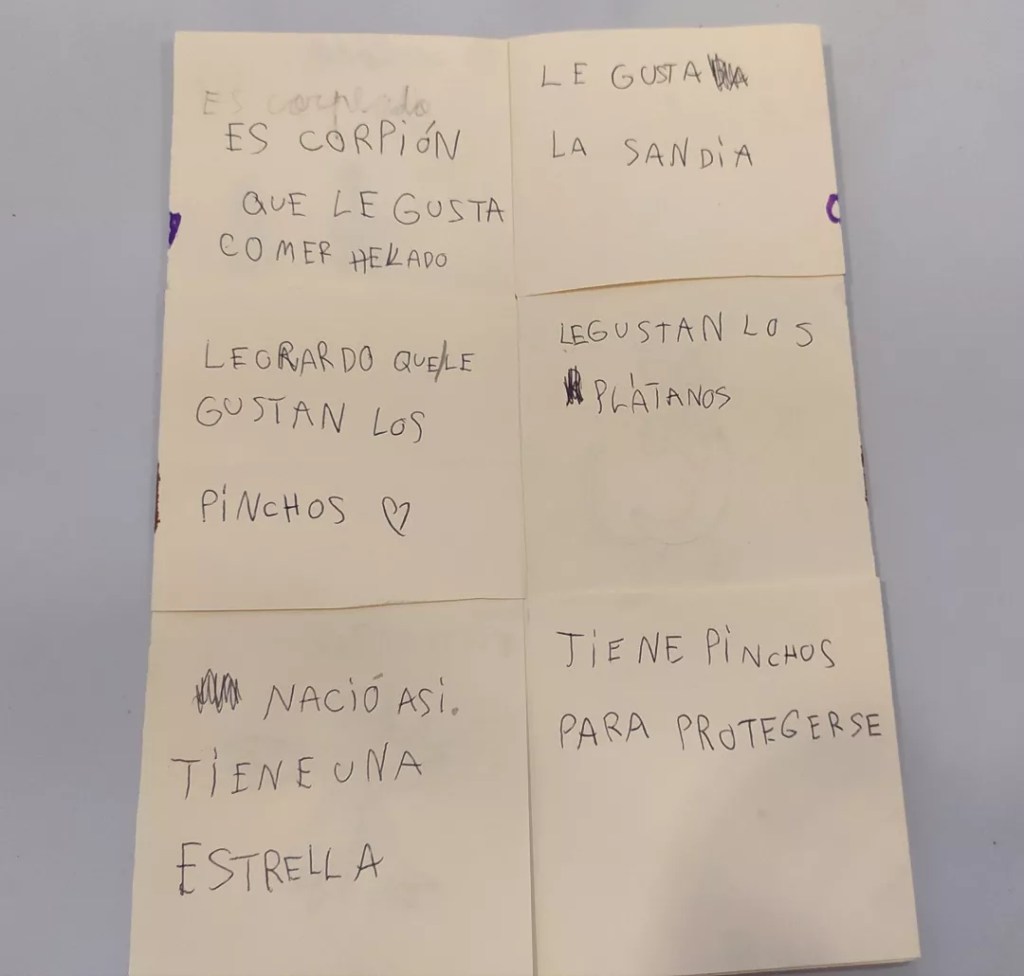 Es corpledo
ES CORPIÓN
QUE LE GUSTA
COMER HELADO
LE GUSTA
LA SANDIA
LEORARDO QUE LE
GUSTAN LOS
PINCHOS
LE GUSTAN LOS
PLÁTANOS
NACIÓ ASI.
TIENE UNA
ESTRELLA
TIENE PINCHOS
PARA PROTEGERSE